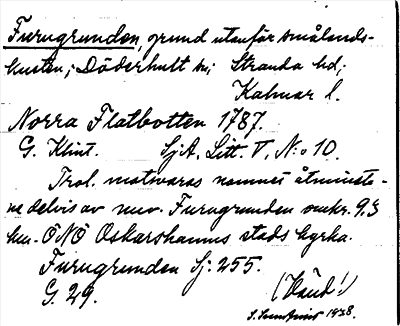 Furugrunden, grund utanför smålands-
kusten; Döderhult sn; Stranda hd;
Kalmar l.
Norra Flatbotten 1787.
G. Klint. SjA. Litt. V, N:o 10.
Trol. motsvaras namnet åtminsto-
ne delvis av nuv. Furugrunden omkr. 9.3
km. ÖNÖ Oskarshamns stads kyrka.
Furugrunden Sj: 255.
G. 29. (Händ!)
1928.